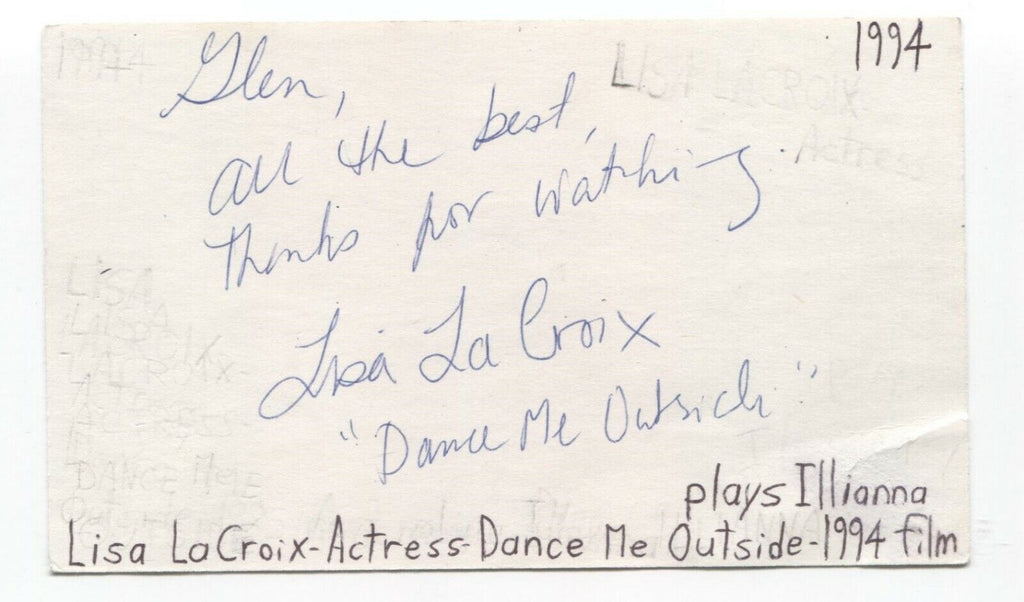 1994
Glen,
all the best,
thanks for watching.
Lisa LaCroix
"Dance Me Outside"
plays Illianna
Lisa LaCroix-Actress-Dance Me Outside-1994 film
LISA LACROIX
Actress
1994
LISA